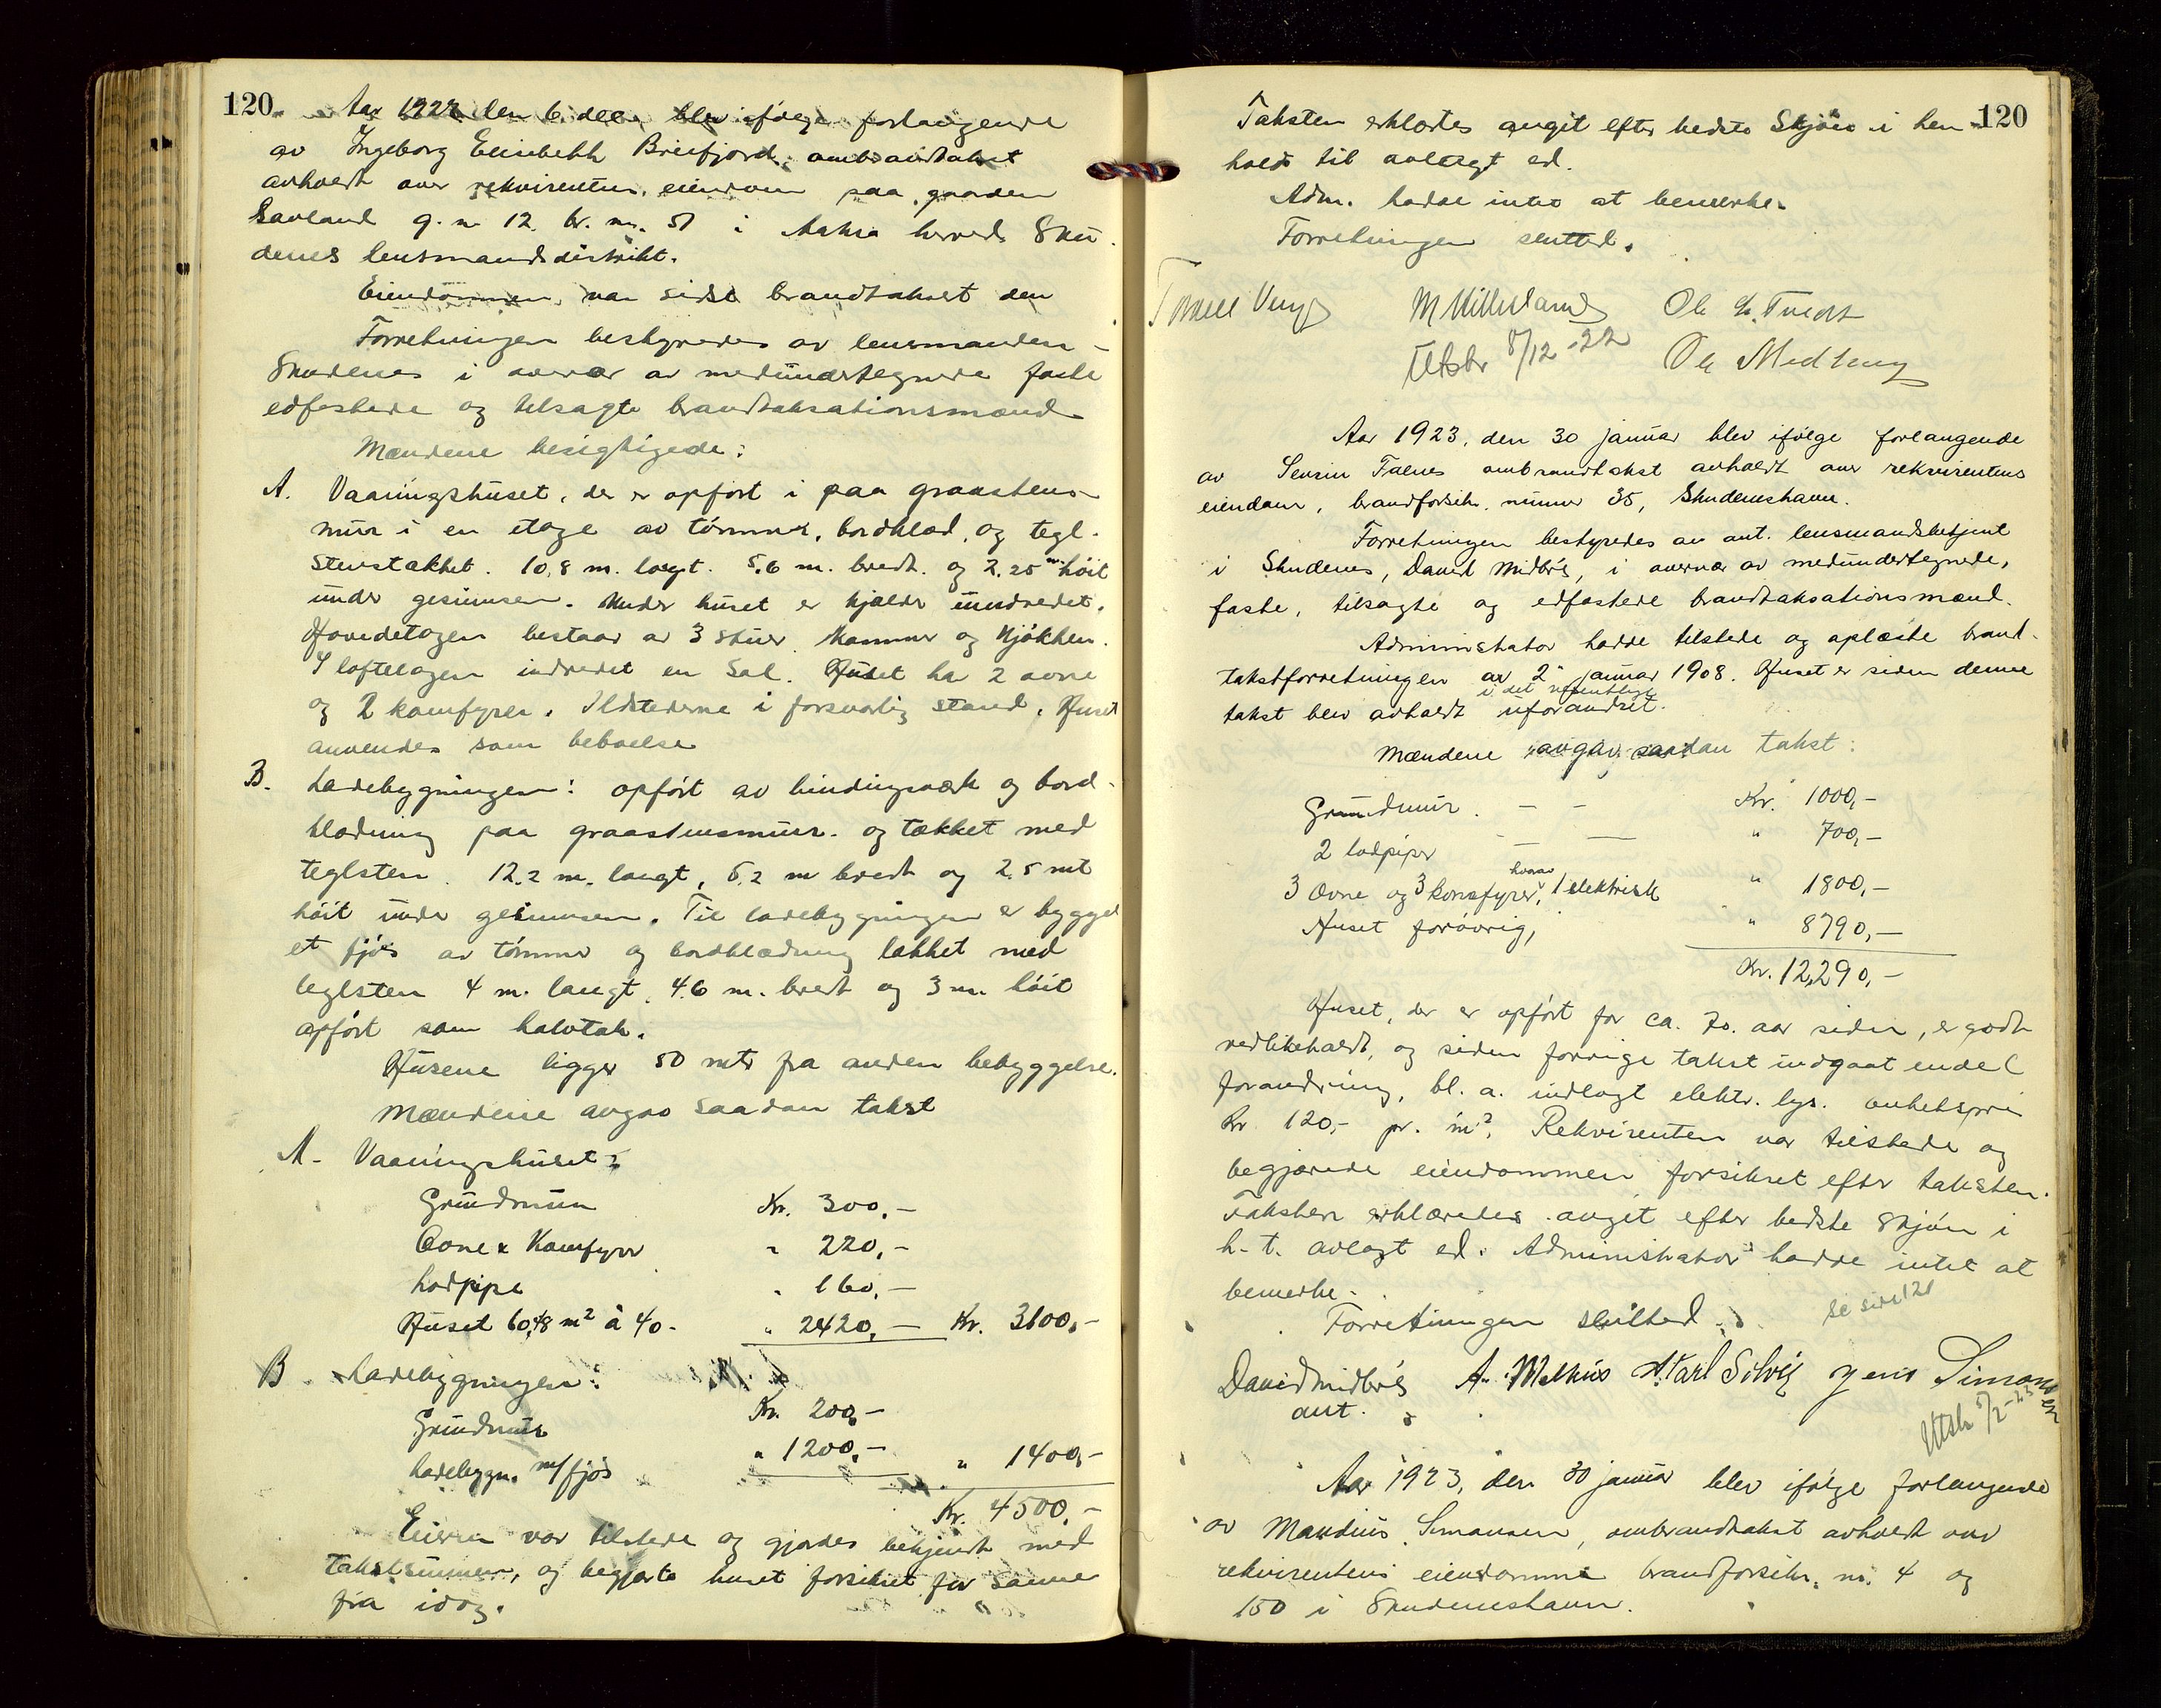 120.
Aar 1922 den 6. dec. blev ifølge forlangende
av Ingeborg Elisebeth Breifjord ombrandtakst
avholdt over rekvirentens eiendom paa gaarden
Sævland g. n. 12. br. nr. 51 i Aakra herred Sku-
denes lensmandsdistrikt.
Eiendommen var sidst brandtakset den
Forretningen bestyredes av lensmanden
Skudenes i overvær av medundertegnede faste
edfæstede og tilsagte brandtaksationsmænd
Mændene besigtigede:
A. Vaaningshuset, der er opført i paa graastens-
mur i en etage av tømmer, bordklæd, og tegl-
stenstækket. 10,8 m. langt. 5,6 m. bredt. og 2.25 m høit
under gesimsen. Under huset er kjælder indredet.
Hovedetagen bestaar av 3 stuer, kammer og kjøkken.
I loftetagen indredet en sal. Huset har 2 ovne
og 2 komfyrer. Ildstederne i forsvarlig stand. Huset
anvendes som beboelse
B. Ladebygningen: opført av bindingsverk og bord-
klædning paa graastensmur og tækket med
teglsten. 12.2 m. langt, 6,2 m bredt og 2.5 mt
høit under gesimsen. Til ladebygningen er bygget
et fjøs av tømmer og bordklædning tækket med
teglsten 4 m. langt, 4.6 m. bredt og 3 m. høit
opført som halvtak.
Husene ligger 50 mtr fra anden bebyggelse.
Mændene avgav saadan takst
A. Vaaningshuset:
Grundmuren Kr. 300,-
Ovne & Komfyrer " 220,-
Ladpipe " 160,-
Huset 60,48 m² à 40- " 2420,- Kr. 3100,-
B. Ladebygningen:
Grundmur Kr. 200,-
Ladebygn. m/fjøs " 1200,- " 1400,-
Kr. 4500,-
Eieren var tilstede og gjordes bekjendt med
takstsummen, og begjærte huset forsikret for samme
fra idag.
120
Taksten erklærtes avgit efter bedste skjøn i hen-
hold til avlagt ed.
Adm. hadde intet at bemerke.
Forretningen sluttet.
M Hilleland Ole
Utskr 8/12-22 Ole Medhaug
Aar 1923, den 30 januar blev ifølge forlangende
av Sensin Falnes ombrandtakst avholdt over rekvirentens
eiendom, brandforsikr. numer 35, Skudeneshavn.
Forretningen bestyredes av aut. lensmandsbetjent
i Skudenes, David Midbøe, i overvær av medundertegnede,
faste, tilsagte og edfæstede brandtaksationsmænd.
Administrator hadde tilstede og oplæste brand-
takstforretningen av 2 januar 1908. Huset er siden denne
i det væsentlige
takst blev avholdt uforandret.
Mændene avgav saadan takst:
Grundmur - - Kr. 1000,-
2 ladpiper - - " 700,-
hvorav
3 Ovne og 3 komfyrer, 1 elektrisk " 1800,-
Huset forøvrig, " 8790,-
Kr. 12,290,-
Huset, der er opført for ca. 70. aar siden, er godt
vedlikeholdt, og siden forrige takst undgaat endel
forandring, bl. a. indlagt elektr. lys. Enhetspris
kr 120,- pr. m². Rekvirenten var tilstede og
begjærede eiendommen forsikret efter taksten.
Taksten erklæredes avgit efter bedste skjøn i
h. t. avlagt ed. Administrator hadde intet at
bemerke.
Forretningen sluttet. se side 121
David Midbøe A. Melhus Karl Solvig Jens Simonsen
aut.
Utskr 5/2-23
Aar 1923, den 30 januar blev ifølge forlangende
av Mandius Simonsen, ombrandtakst avholdt over
rekvirentens eiendomme brandforsikr. nr. 4 og
150 i Skudeneshavn.